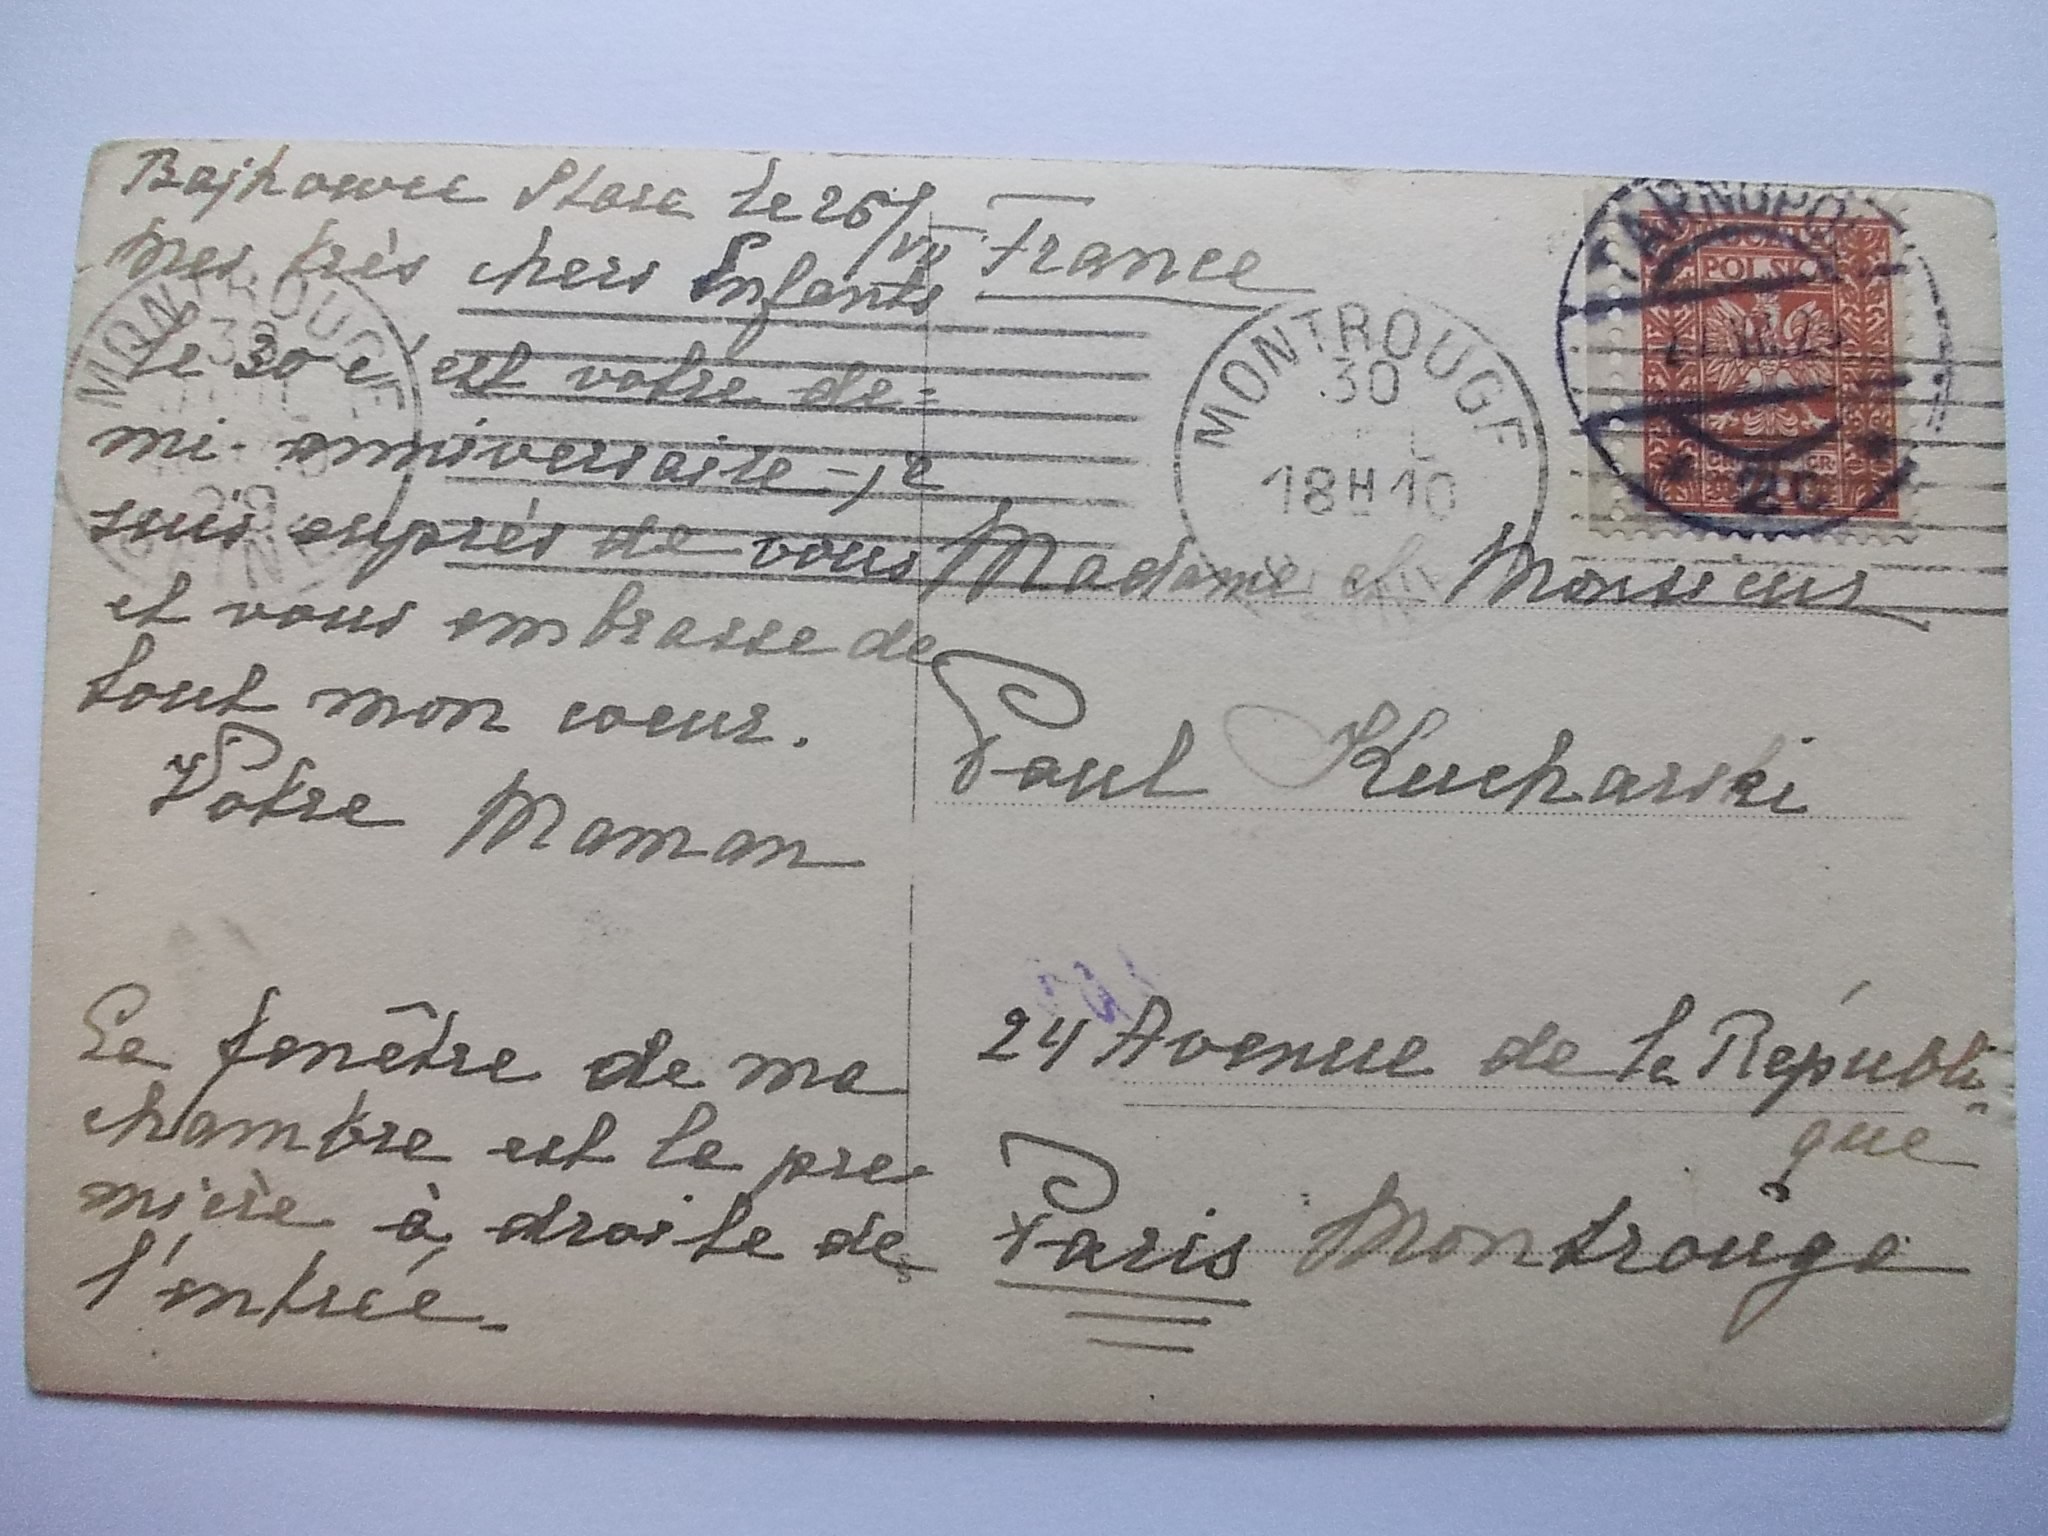 Bajkowce Stare le 26/VII
Mes très chers Enfants
Le 30 c'est votre de=
mi-anniversaire - je
suis auprès de vous
et vous embrasse de
tout mon coeur.
Votre Maman
La fenêtre de ma
chambre est la pre-
mière à droite de
l'entrée.
France
Madame et Monsieur
Paul Kucharski
24 Avenue de la Républi-
que
Paris Montrouge
MONTROUGE
30
18H10
MONTROUGE
30
TARNOPOL
POLSKA